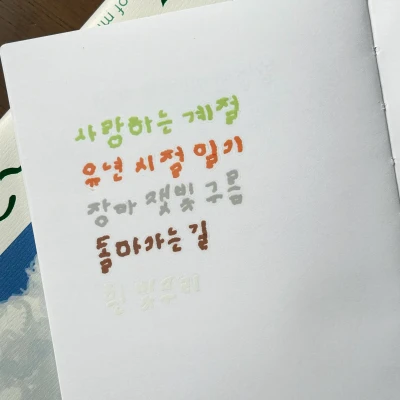 사랑하는 계절
유년 시절 일기
장마 잿빛 구름
돌아가는 길
of m